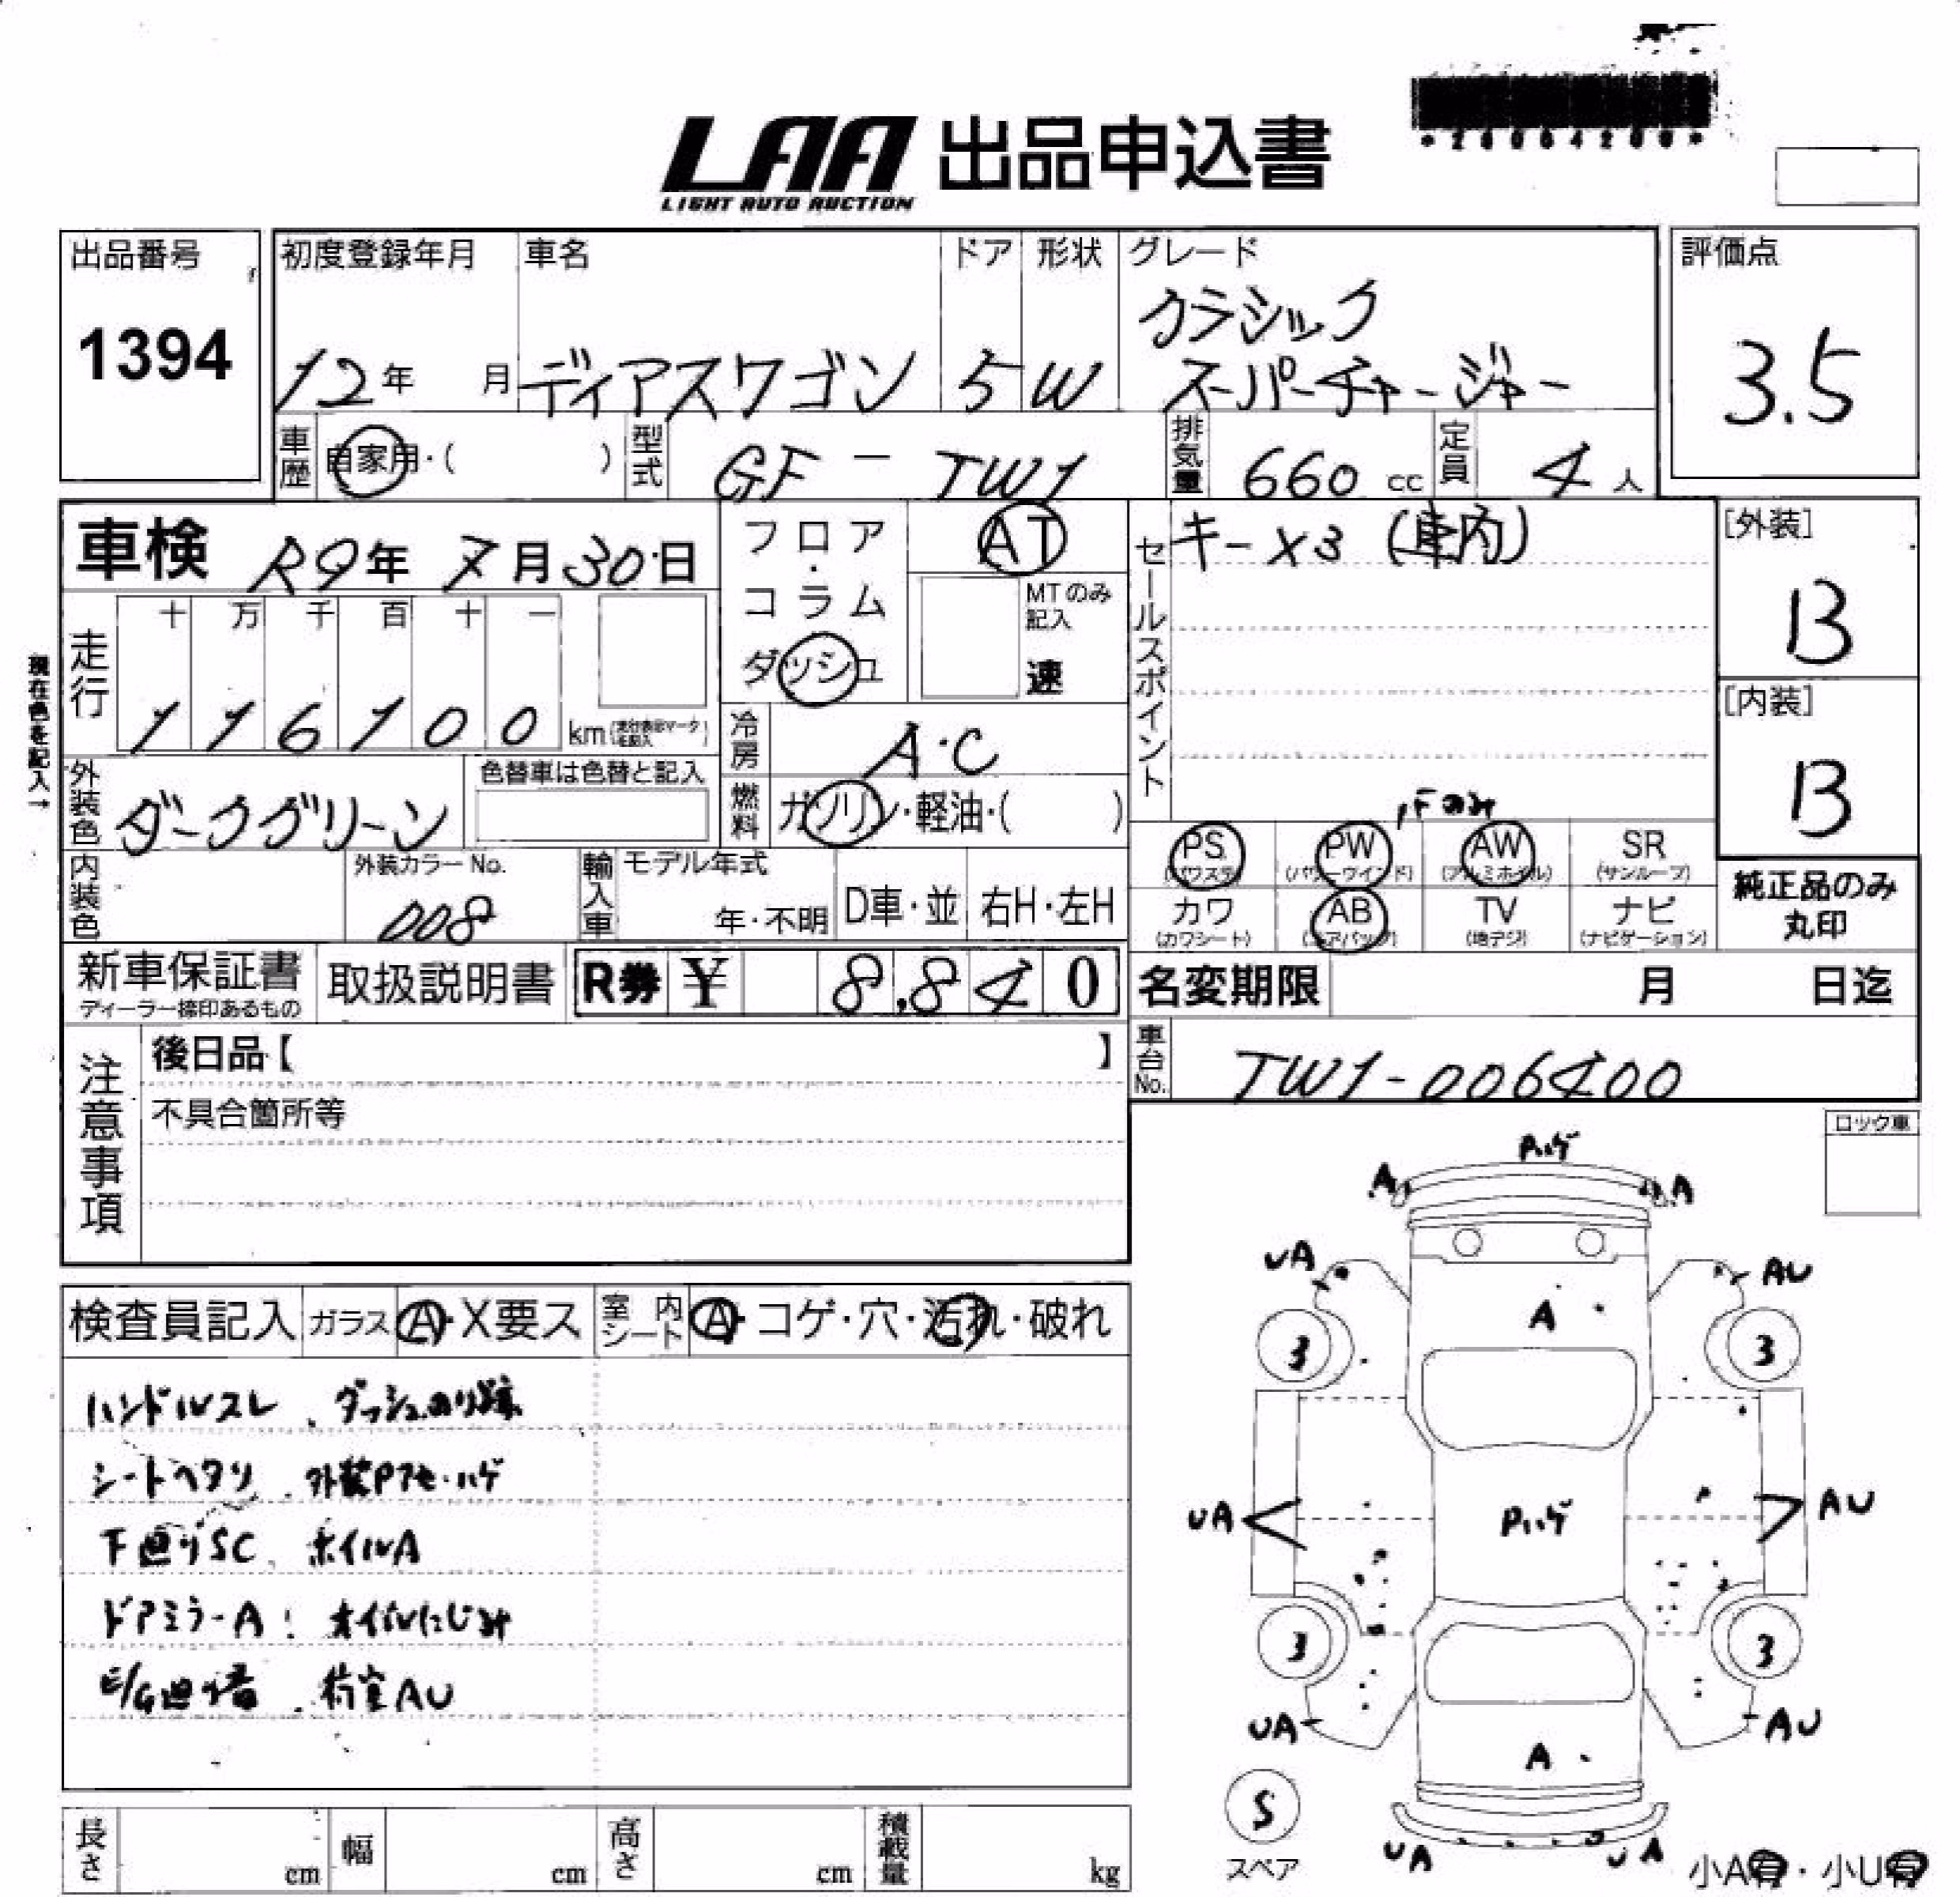 LAA 出品申込書
LIGHT AUTO AUCTION
出品番号
1394
初度登録年月
12年 月
車名
ディアスワゴン
ドア
5
形状
W
グレード
クラシック
スーパーチャージャー
評価点
3.5
車歴 自家用・( )
型式 GF - TW1
排気量 660 cc
定員 4 人
車検 R9年 7月30日
フロア・コラム
ダッシュ
AT
MTのみ記入
速
セールスポイント
キー×3 (車内)
[外装]
B
[内装]
B
現在色を記入→
走行
十 万 千 百 十 一
1 1 6 1 0 0 km
冷房 A・C
燃料 ガソリン・軽油・( )
外装色 ダークグリーン
色替車は色替と記入
内装色
外装カラーNo.
008
輸入車
モデル年式
年・不明
D車・並
右H・左H
,Fのみ
PS (パワステ)
PW (パワーウインド)
AW (アルミホイル)
SR (サンルーフ)
カワ (カワシート)
AB (エアバッグ)
TV (地デジ)
ナビ (ナビゲーション)
純正品のみ
丸印
新車保証書
ディーラー捺印あるもの
取扱説明書
R券 ¥ 8,840
名変期限 月 日迄
車台No. TW1-006400
注意事項
後日品【 】
不具合箇所等
ロック車
検査員記入
ガラス A・X要ス
室内シート A・コゲ・穴・汚れ・破れ
ハンドルスレ、ダッシュのり跡
シートヘタリ、外装Pアセ・ハゲ
下廻りSC、ホイルA
ドアミラーA、オイルにじみ
E/G廻り音、荷室AU
Pハゲ
A A
UA AU
A
3 3
UA AU
Pハゲ
3 3
UA AU
A
S
スペア
UA UA
小A有・小U有
長さ cm
幅 cm
高さ cm
積載量 kg